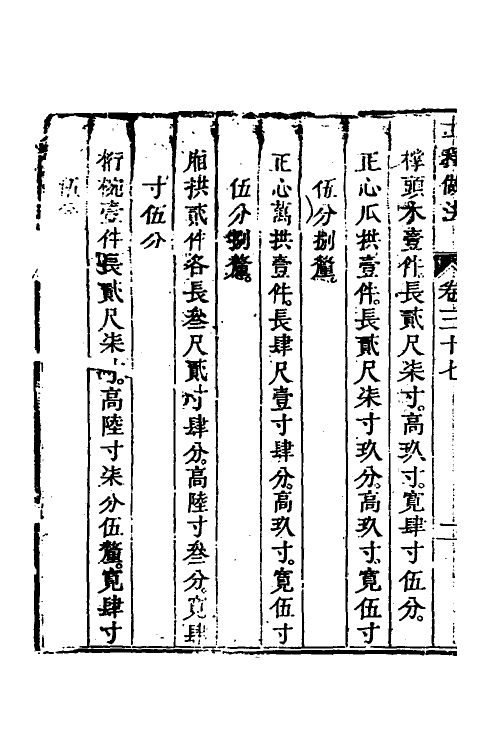 工程做法
卷三十七
撑頭木壹件長貳尺柒寸。高玖寸。寬肆寸伍分。
正心瓜拱壹件。長貳尺柒寸玖分。高玖寸。寬伍寸
伍分捌釐。
正心萬拱壹件。長肆尺壹寸肆分。高玖寸。寬伍寸
伍分捌釐。
廂拱貳件各長叁尺貳寸肆分。高陸寸叁分。寬肆
寸伍分
桁椀壹件長貳尺柒寸。高陸寸柒分伍釐。寬肆寸
伍